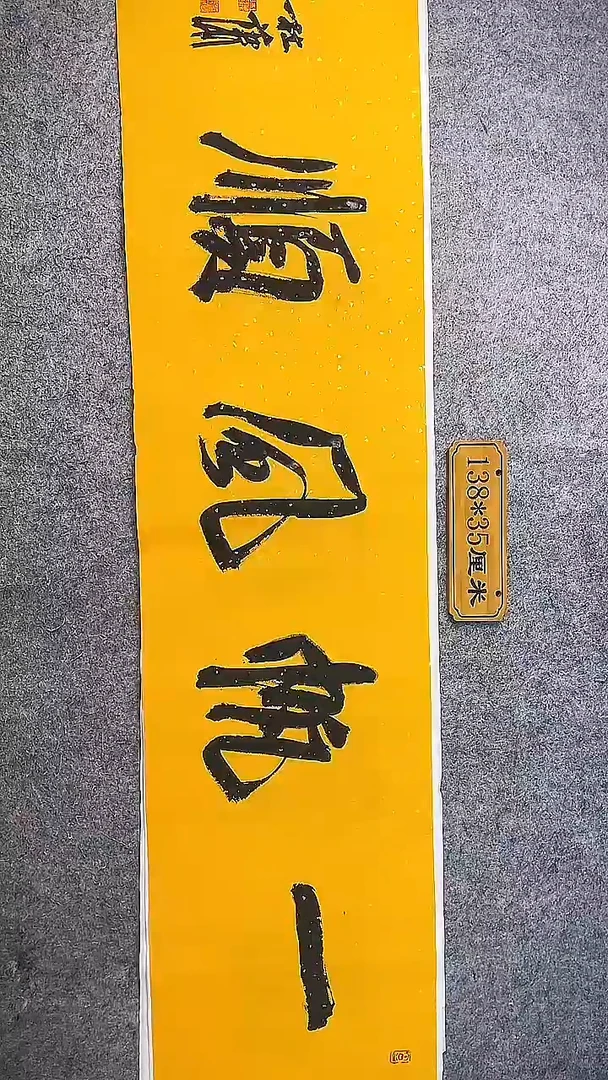 一帆風順
138*35厘米